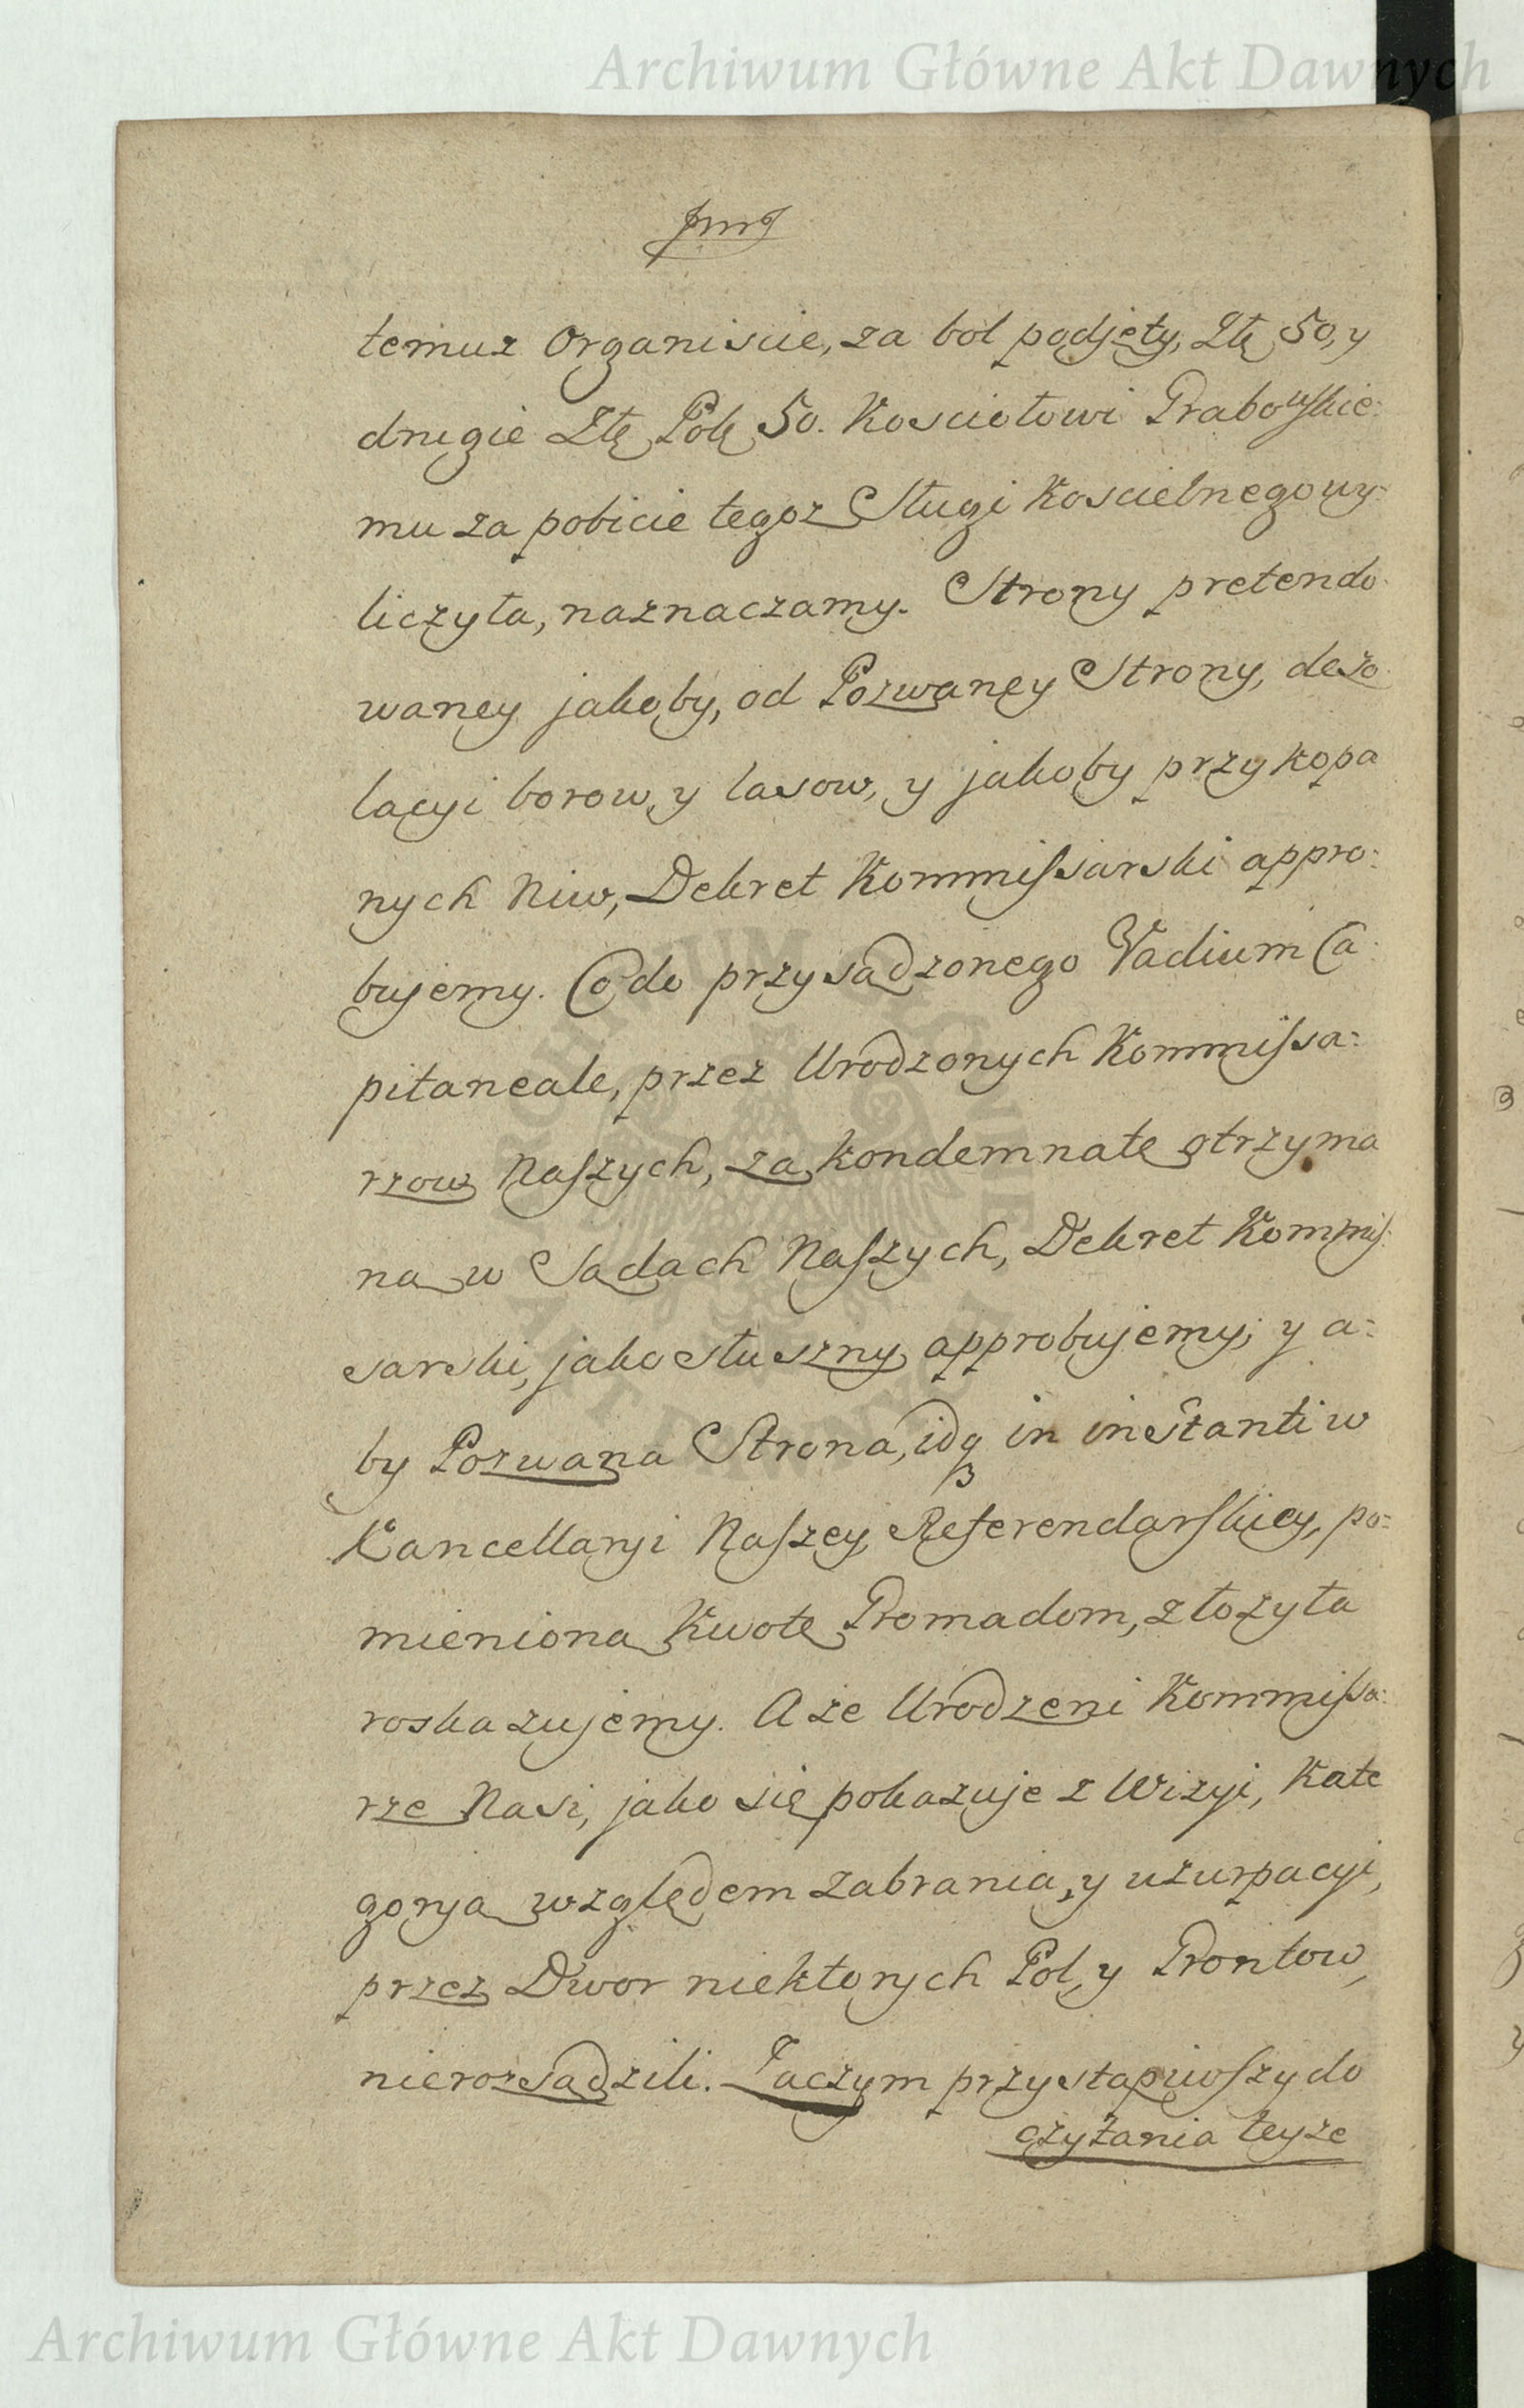 Archiwum Główne Akt Dawnych
temuz Organiscie, za bol podjęty, Złt 50, y
drugie Złt Pol 50. Kosciołowi Grabowskie:
mu za pobicie tegoz Sługi Koscielnego wy:
liczyła, naznaczamy. Strony pretendo:
waney jakoby, od Pozwaney Strony, dezo
lacyi borow, y lasow, y jakoby przykopa
nych Niw, Dekret Kommissarski appro:
bujemy. Co do przysądzonego Vadium Ca:
pitaneale, przez Urodzonych Kommissa:
rzow Naszych, za kondemnatę otrzyma
ną w Sądach Naszych, Dekret Kommis:
sarski, jako słuszny approbujemy; y a:
by Pozwana Strona, idq in instanti w
Kancellaryi Naszey Referendarskiey, po:
mienioną Kwotę Gromadom, złozyła
roskazujemy. A ze Urodzeni Kommissa:
rze Nasi, jako się pokazuje z Wizyi, Kate
goryą względem zabrania, y uzurpacyi,
przez Dwor niektorych Pol, y Grontow,
nierozsądzili. Zaczym przystąpiwszy do
czytania teyze
Archiwum Główne Akt Dawnych